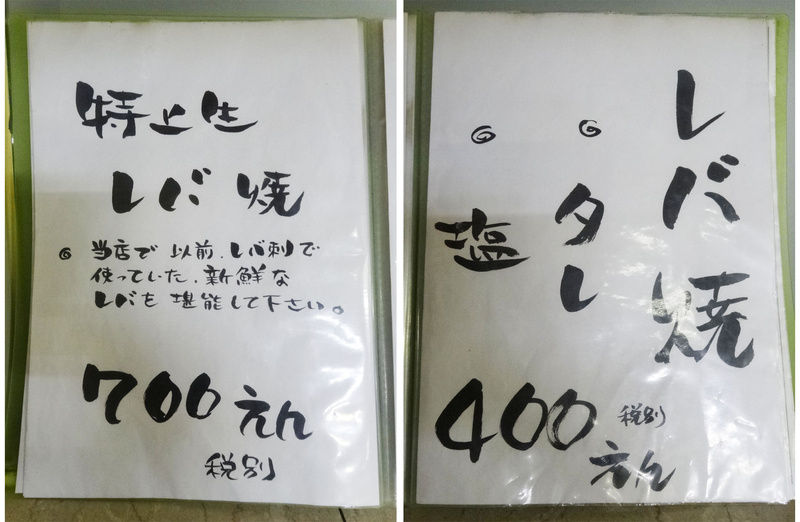 特上生
レバ焼
◎ 当店で以前、レバ刺で
使っていた、新鮮な
レバを堪能して下さい。
700えん
税別
レバ焼
◎ タレ
◎ 塩
400えん
税別